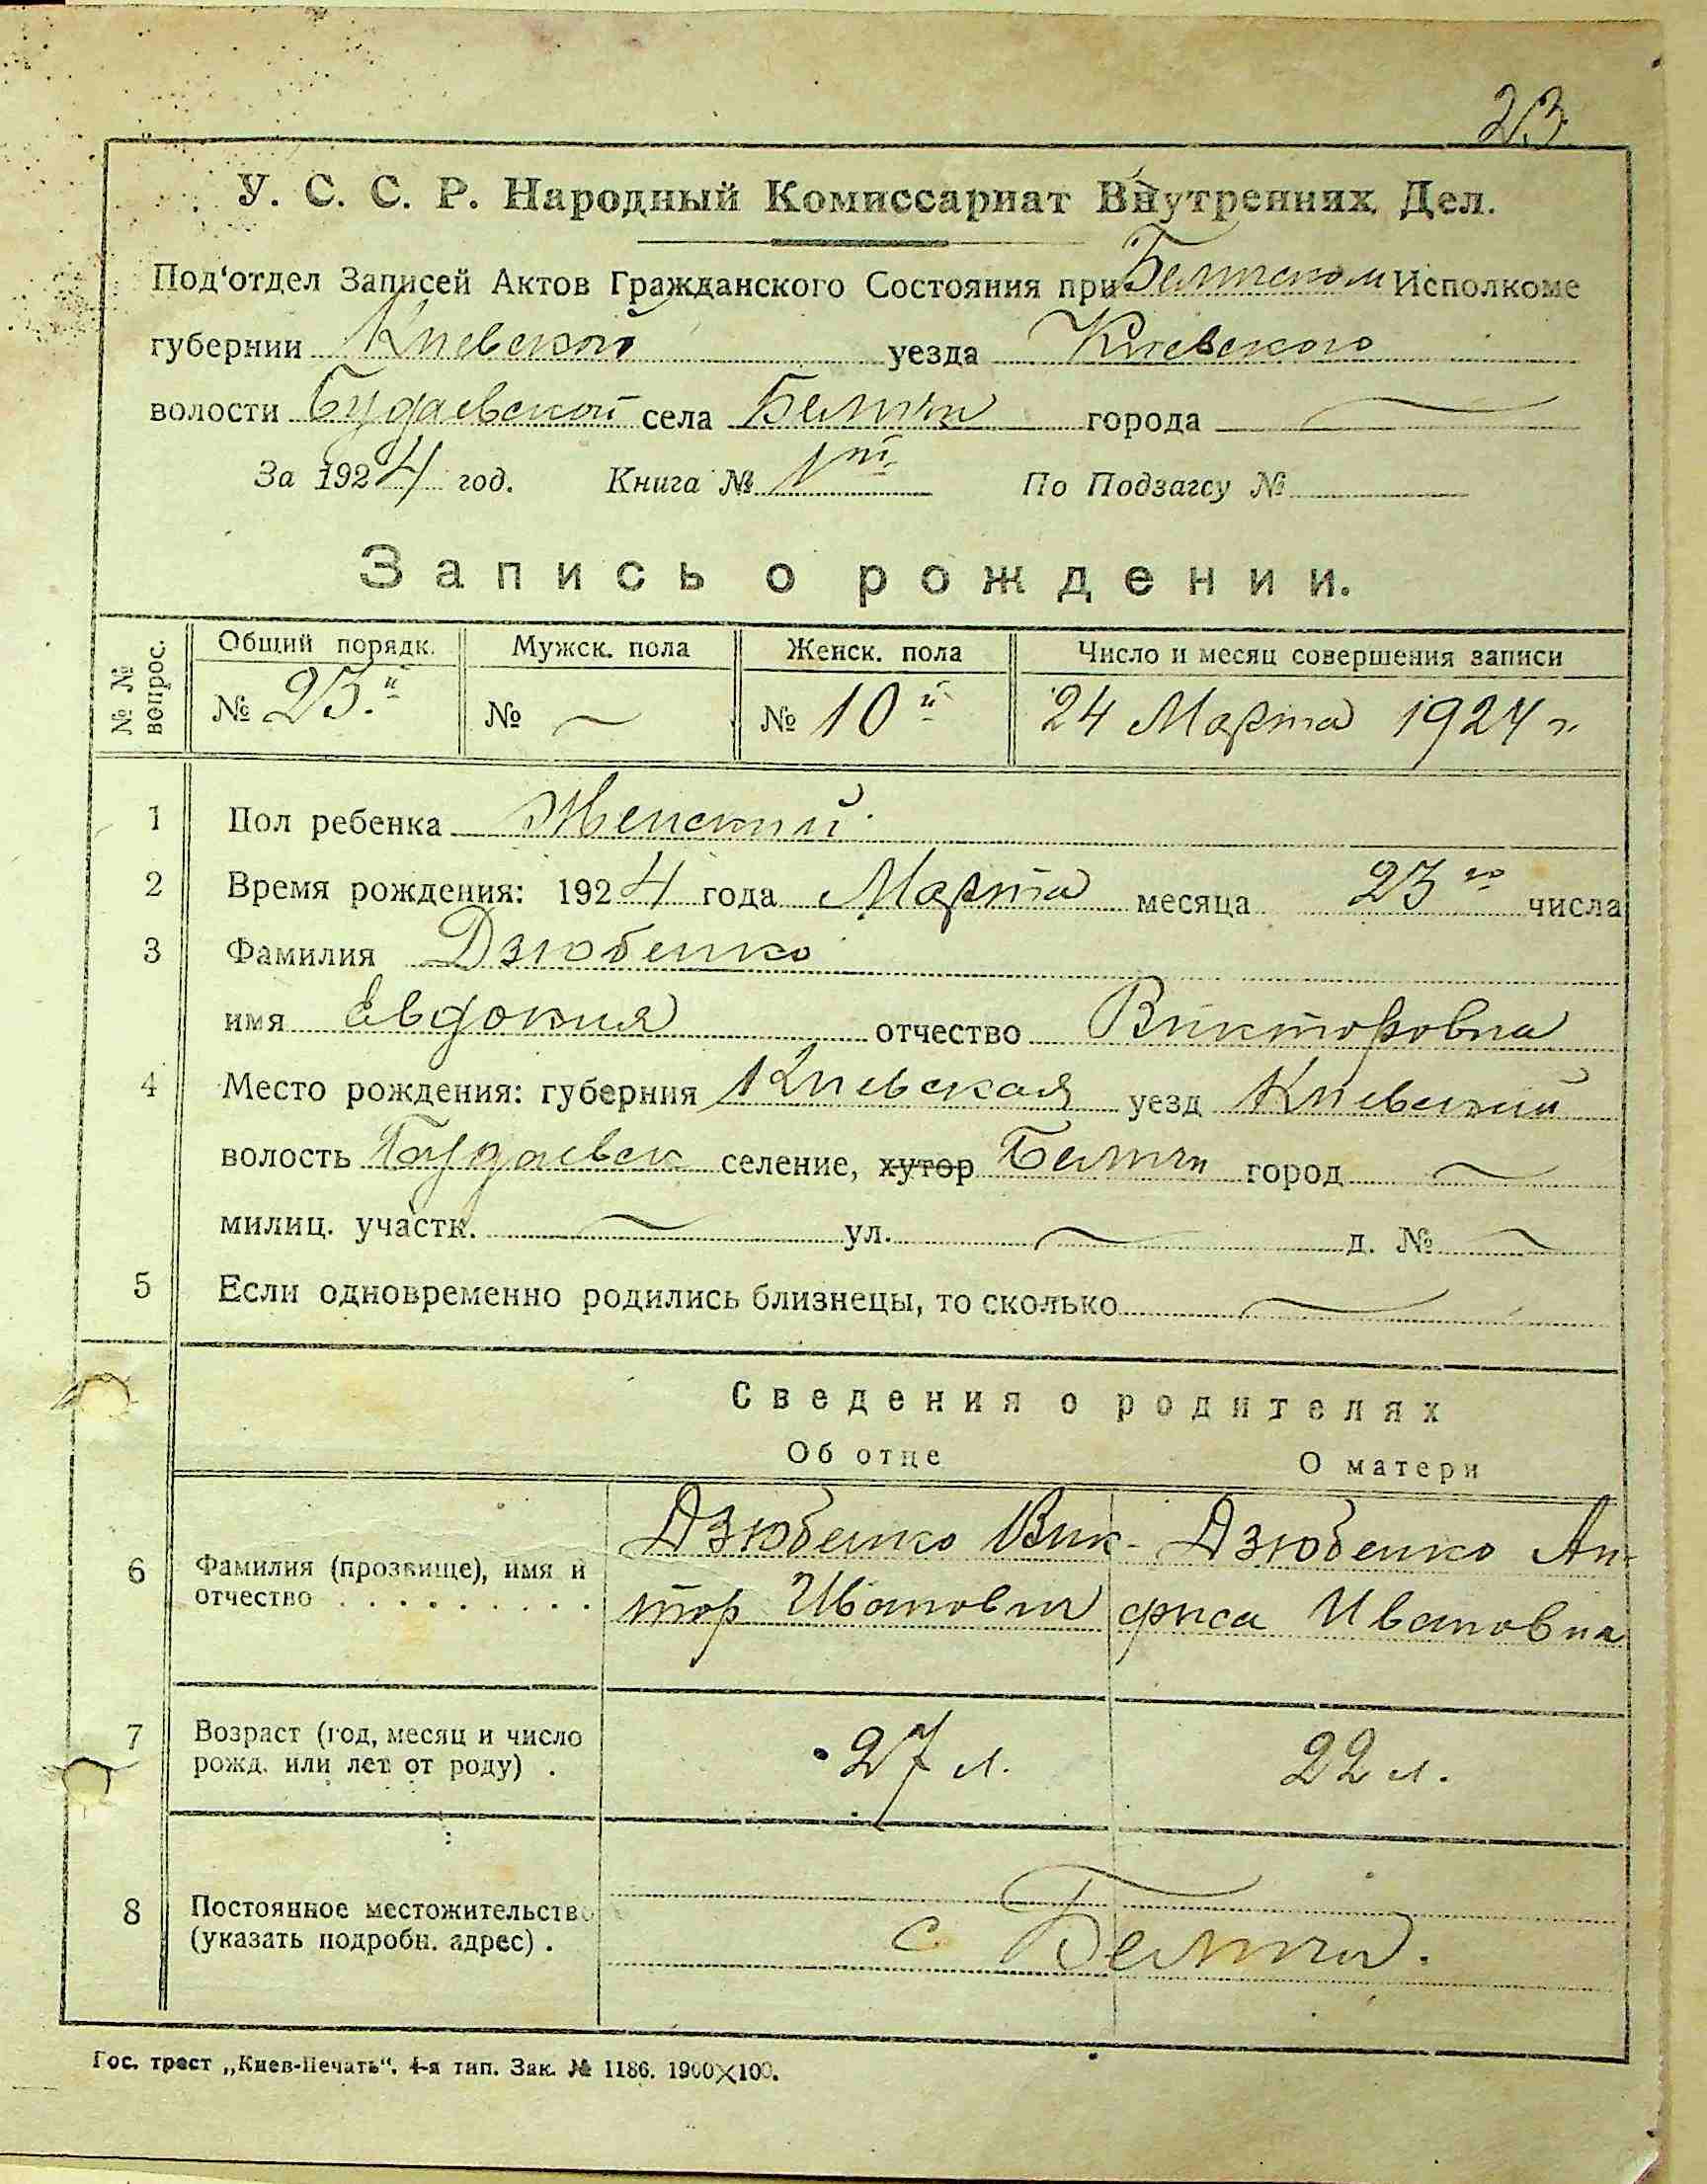 23
У. С. С. Р. Народный Комиссариат Внутренних Дел.
Под‘отдел Записей Актов Гражданского Состояния при Беличском Исполкоме
губернии Киевской уезда Киевского
волости Будаевской села Беличи города
За 1924 год. Книга № 1ая По Подзагсу №
Запись о рождении.
№ № вопрос. Общий порядк. Мужск. пола Женск. пола Число и месяц совершения записи
№ 23.й № № 10й 24 Марта 1924 г.
1 Пол ребенка Женский
2 Время рождения: 1924 года Марта месяца 23го числа
3 Фамилия Дзюбенко
имя Евдокия отчество Викторовна
4 Место рождения: губерния Киевская уезд Киевский
волость Будаевск селение, хутор Беличи город
милиц. участк. ул. д. №
5 Если одновременно родились близнецы, то сколько
Сведения о родителях
Об отце О матери
Дзюбенко Вик- Дзюбенко Ан-
6 Фамилия (прозвище), имя и
отчество . . . . . . . . . . тор Иванович фиса Ивановна
7 Возраст (год, месяц и число
рожд. или лет от роду) . 27 л. 22 л.
8 Постоянное местожительство
(указать подробн. адрес) . с. Беличи.
Гос. трест „Киев-Печать“. 4-я тип. Зак. № 1186. 1900×100.